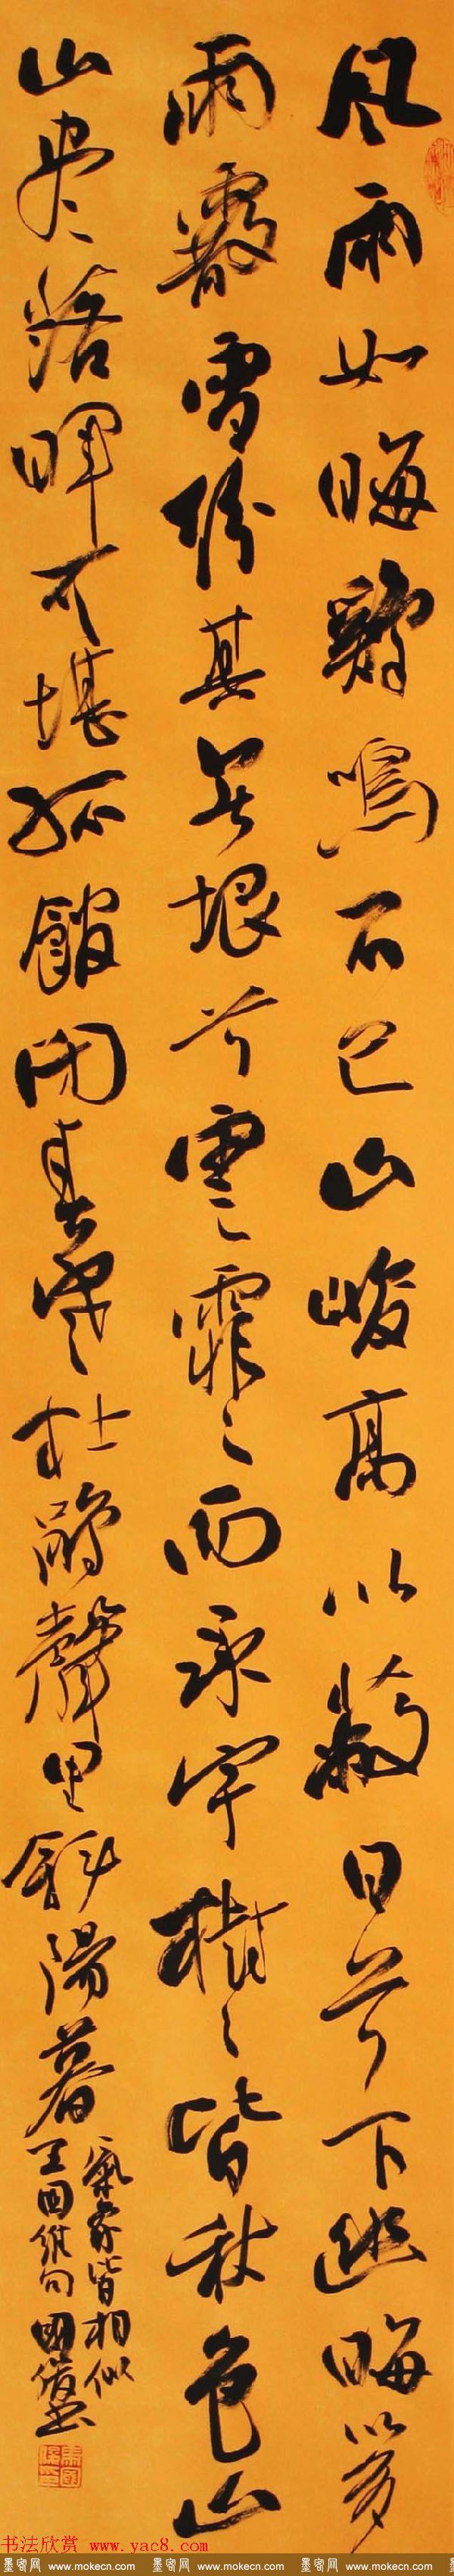 风雨如晦鷄鳴不已山峻高以蔽日兮下幽晦以多
雨霰雪紛其無垠兮雲霏々而承宇樹々皆秋色山
山尽落暉可堪孤館閉春寒杜鵑聲里斜陽暮
氣象皆相似
王国維句 國俊書
书法欣赏 www.yac8.com
墨客网 www.mokecn.com 墨客网 www.mokecn.com 墨客网 www.mokecn.com